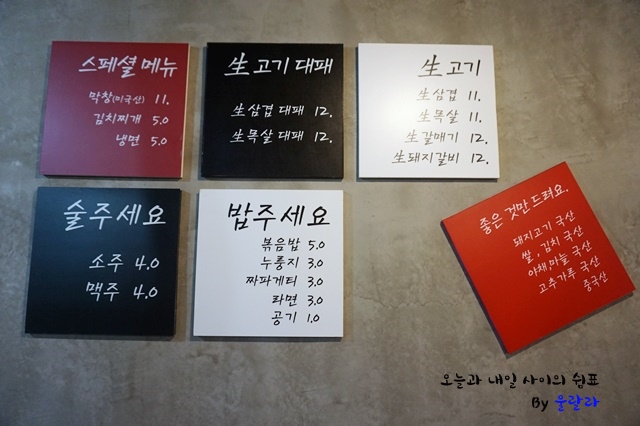 스페셜 메뉴
막창(미국산) 11.
김치찌개 5.0
냉면 5.0
生고기 대패
生삼겹 대패 12.
生목살 대패 12.
生고기
生삼겹 11.
生목살 11.
生갈매기 12.
生돼지갈비 12.
술주세요
소주 4.0
맥주 4.0
밥주세요
볶음밥 5.0
누룽지 3.0
짜파게티 3.0
라면 3.0
공기 1.0
좋은 것만 드려요.
돼지고기 국산
쌀, 김치 국산
야채,마늘 국산
고추가루 국산
중국산
오늘과 내일 사이의 쉼표
By 울랄라